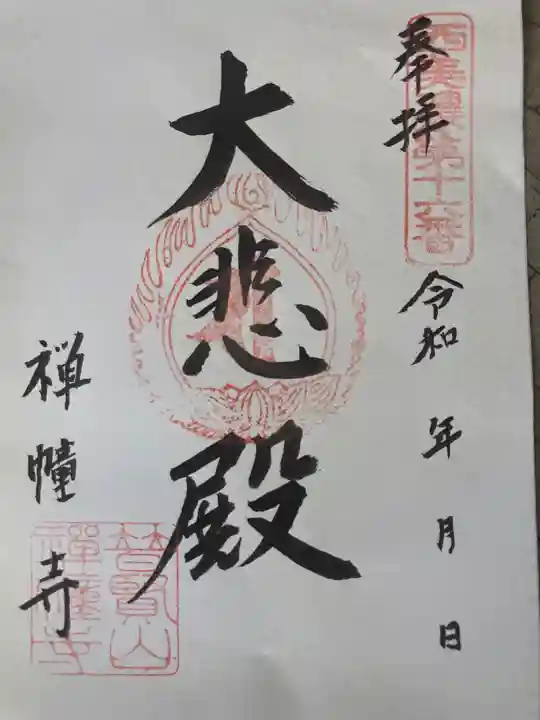 奉拝
西美濃第十六番
令和 年 月 日
大悲殿
禅幢寺
菩賢山
禅幢寺